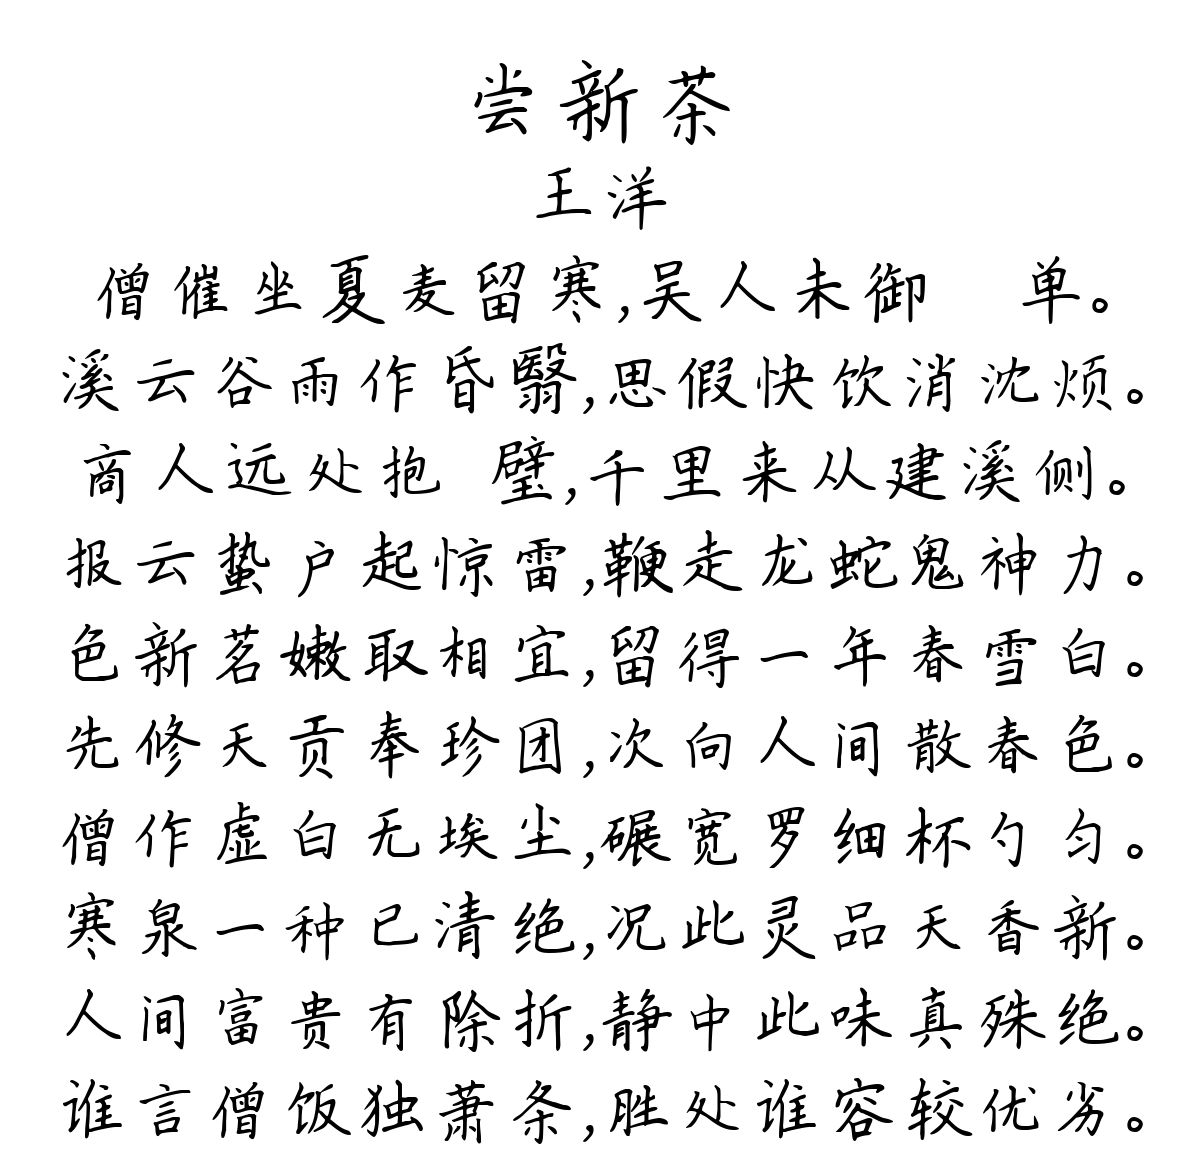 尝新茶
王洋
僧催坐夏麦留寒,吴人未御 单。
溪云谷雨作昏翳,思假快饮消沈烦。
商人远处抱 璧,千里来从建溪侧。
报云蛰户起惊雷,鞭走龙蛇鬼神力。
色新茗嫩取相宜,留得一年春雪白。
先修天贡奉珍团,次向人间散春色。
僧作虚白无埃尘,碾宽罗细杯勺匀。
寒泉一种已清绝,况此灵品天香新。
人间富贵有除折,静中此味真殊绝。
谁言僧饭独萧条,胜处谁容较优劣。